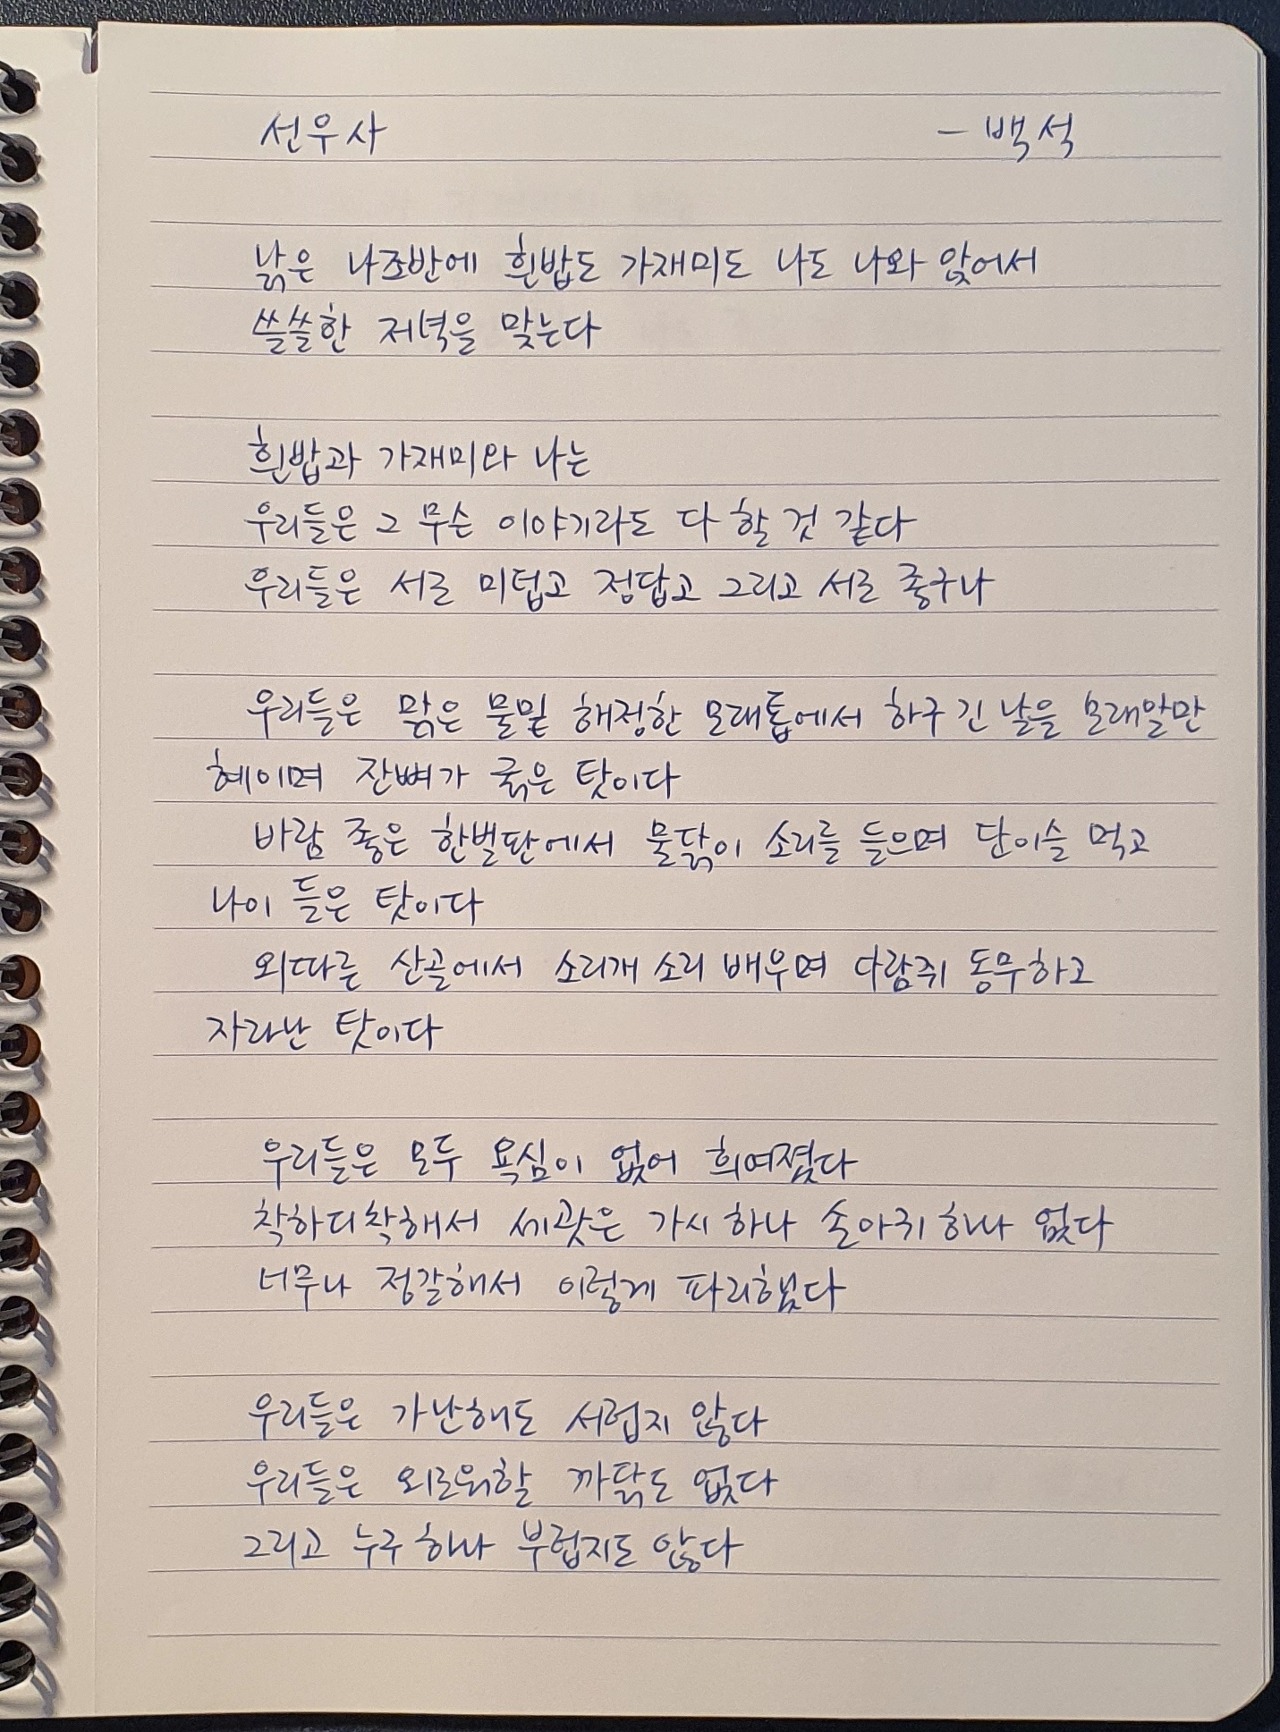 선우사 - 백석
낡은 나조반에 흰밥도 가재미도 나도 나와 앉어서
쓸쓸한 저녁을 맞는다
흰밥과 가재미와 나는
우리들은 그 무슨 이야기라도 다 할 것 같다
우리들은 서로 미덥고 정답고 그리고 서로 좋구나
우리들은 맑은 물밑 해정한 모래톱에서 하구 긴 날을 모래알만
헤이며 잔뼈가 굵은 탓이다
바람 좋은 한벌판에서 물닭이 소리를 들으며 단이슬 먹고
나이 들은 탓이다
외따른 산골에서 소리개 소리 배우며 다람쥐 동무하고
자라난 탓이다
우리들은 모두 욕심이 없어 희여졌다
착하디착해서 세괏은 가시 하나 손아귀 하나 없다
너무나 정갈해서 이렇게 파리했다
우리들은 가난해도 서럽지 않다
우리들은 외로워할 까닭도 없다
그리고 누구 하나 부럽지도 않다